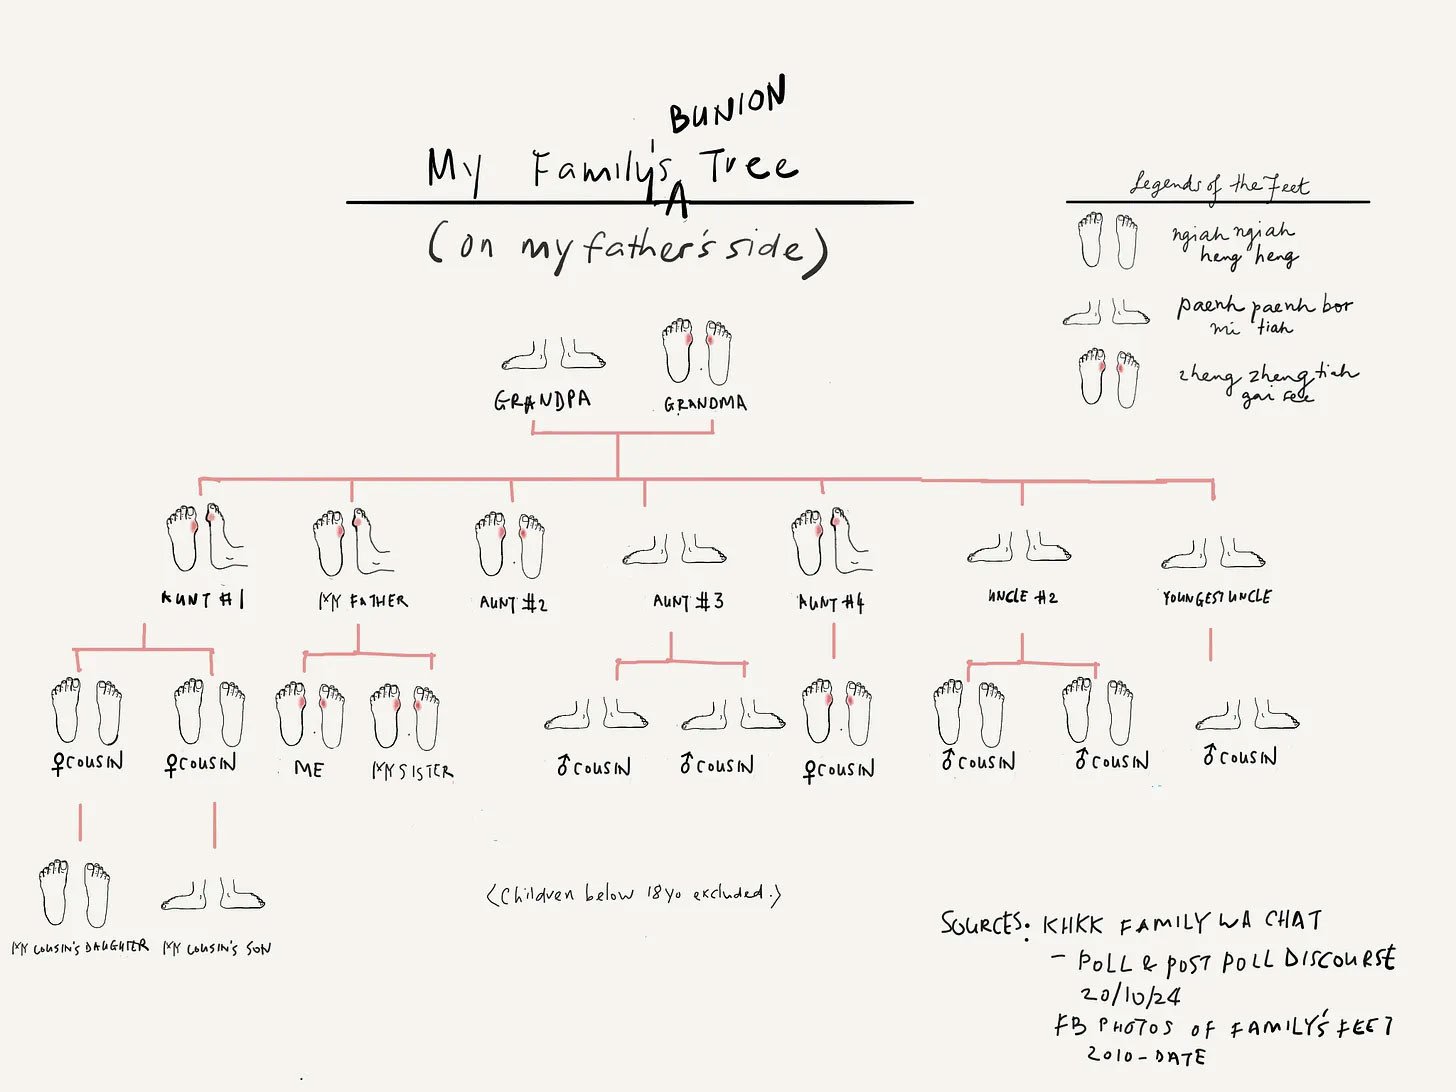 BUNION
My Family's Tree
(on my father's side)
Legends of the Feet
ngiah ngiah
heng heng
paenh paenh bor
mi tiah
zheng zheng tiah
gai see
GRANDPA
GRANDMA
AUNT #1
MY FATHER
AUNT #2
AUNT #3
AUNT #4
UNCLE #2
YOUNGEST UNCLE
♀COUSIN
♀COUSIN
ME
MY SISTER
♂COUSIN
♂COUSIN
♀COUSIN
♂COUSIN
♂COUSIN
♂COUSIN
MY COUSIN'S DAUGHTER
MY COUSIN'S SON
(Children below 18yo excluded.)
SOURCES: KHKK FAMILY WA CHAT
- POLL & POST POLL DISCOURSE
20/10/24
FB PHOTOS OF FAMILY'S FEET
2010-DATE